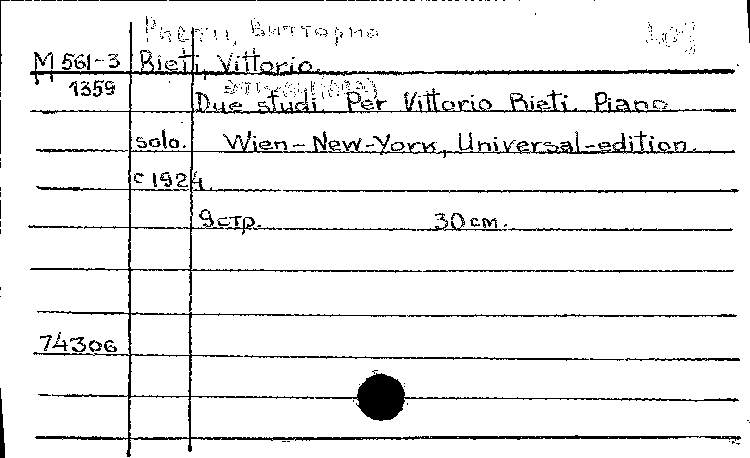 Риети, Витторио
M 561-3 Rieti, Vittorio.
1359
Due studi. Per Vittorio Rieti. Piano
solo. Wien-New-York, Universal-edition.
c 1924.
9 стр. 30 см.
74306